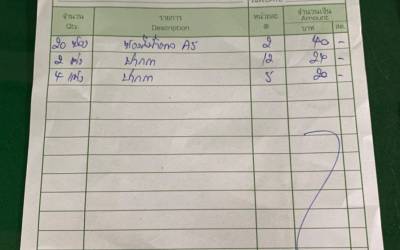 จำนวน รายการ หน่วยละ จำนวนเงิน
Qty. Description @ Amount
บาท สต.
20 ซอง A5 2 40 -
2 แท่ง ปากกา 12 24 -
4 แท่ง ปากกา 5 20 -